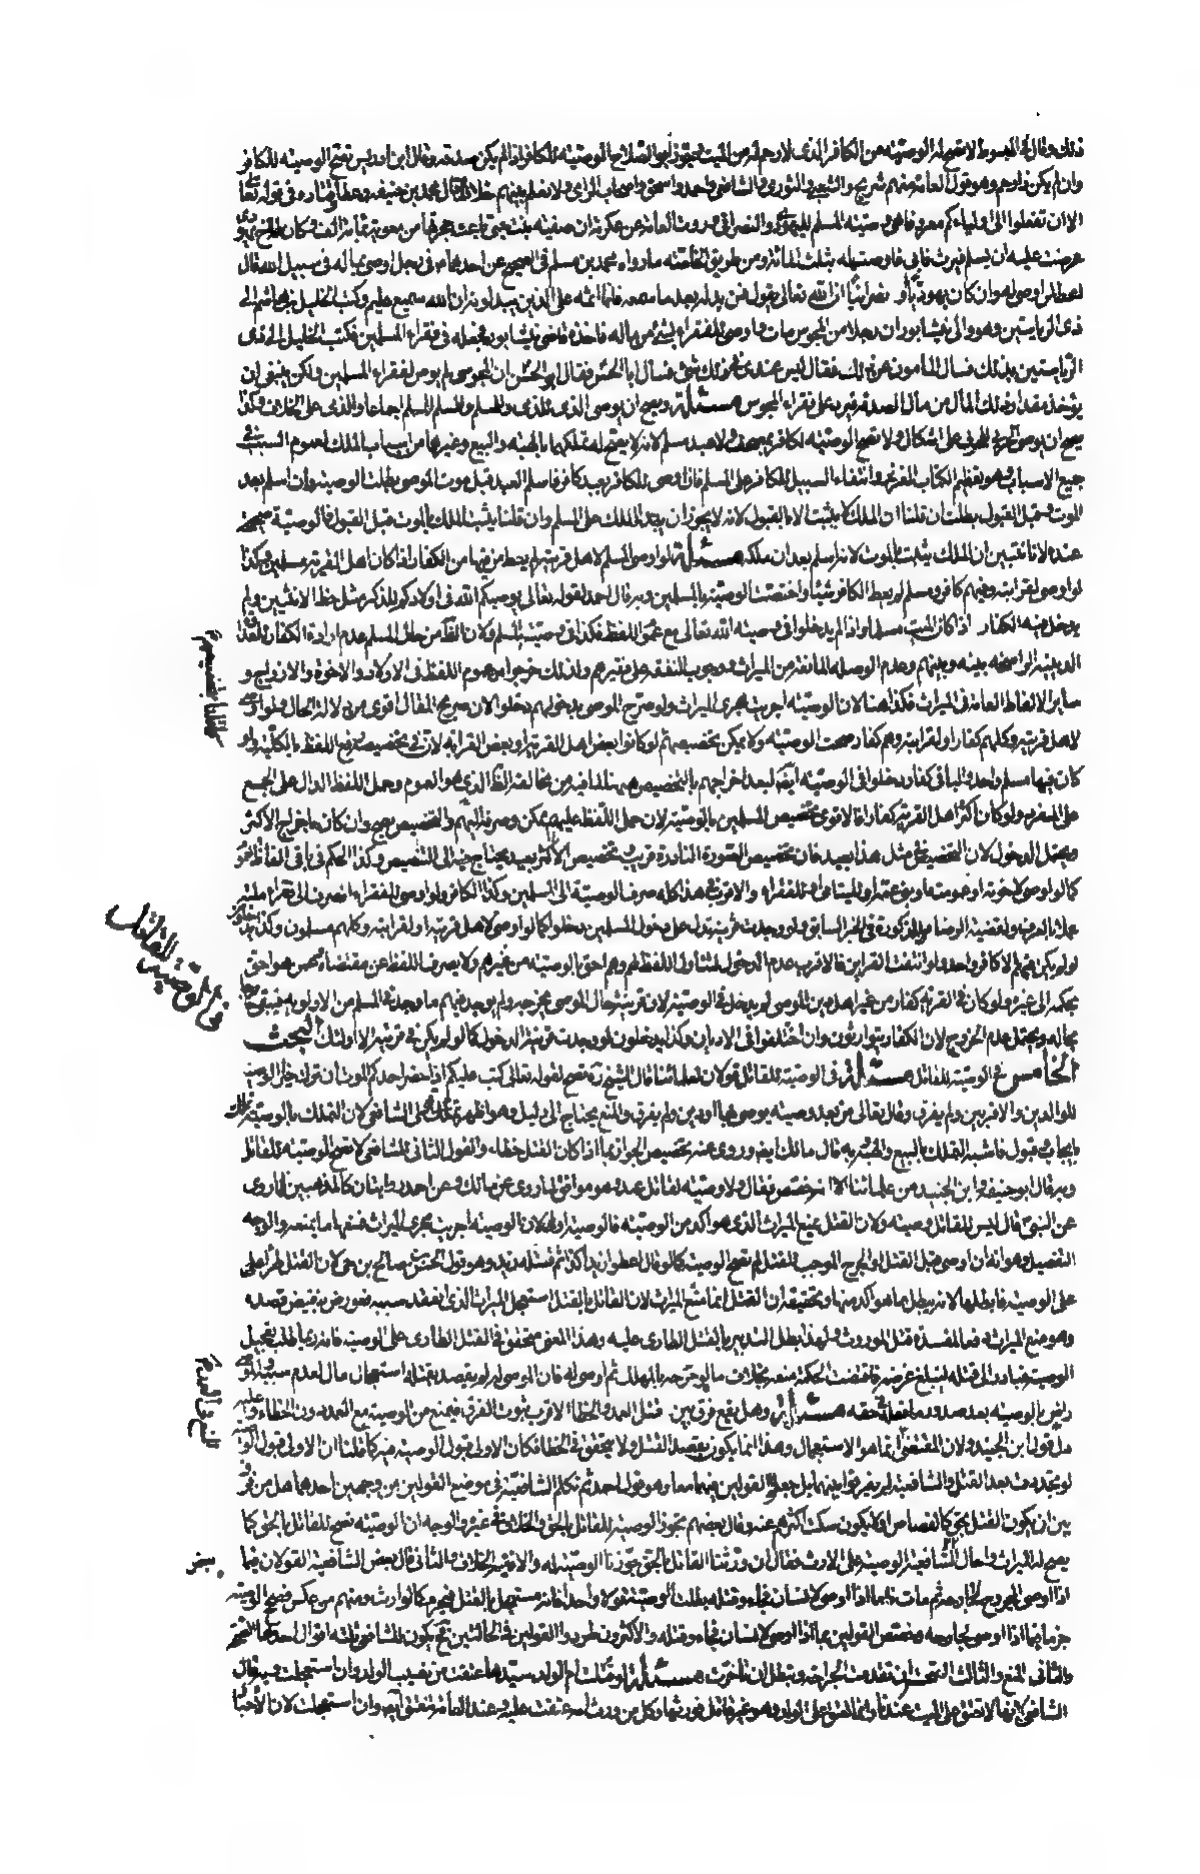 ذلك وقال في المبسوط لا تصح له الوصية من الكافر الذي لا رحم له من الميت يجوز أبو الصلاح الوصية للكافر إذا لم يكن صدقة وقال ابن ادريس تصح الوصية للكافر
وان لم يكن ذا رحم وهو قول العامة منهم شريح والشعبي والثوري والشافعي واحمد واسحق واصحاب الراي ولا نعلم بينهم خلافا قال محمد بن حنيفة وعطا وقتادة في قوله تعا
الا ان تفعلوا الى اوليائكم معروفا هي وصية المسلم لليهودي والنصراني وروت العامة عن عكرمة ان صفية بنت حيي باعت حجرتها من معوية بماية الف وكان لها اخ يهودي
عرضت عليه ان يسلم فيرث فابى فاوصت له بثلث الماية ومن طريق الخاصة ما رواه محمد بن مسلم في الصحيح عن احدهما ع في رجل اوصى بماله في سبيل الله فقال
اعطه لمن اوصى له وان كان يهوديا أو نصرانيا ان الله تعالى يقول فمن بدله بعد ما سمعه فانما اثمه على الذين يبدلونه ان الله سميع عليم وكتب الخليل بن هاشم الى
ذي الرياستين وهو والي نيشابور ان رجلا من المجوس مات واوصى للفقراء بشئ من ماله فاخذه قاضي نيشابور فجعله في فقراء المسلمين فكتب الخليل الى ذي
الرياستين بذلك فسال المأمون عن ذلك فقال ليس عندي في ذلك شئ فسال ابا الحسن ع فقال ابو الحسن ع ان المجوسي لم يوص لفقراء المسلمين ولكن ينبغي ان
يؤخذ مقدار ذلك المال من مال الصدقة فيرد على فقراء المجوس مسئلة ويصح ان يوصي الذمي للذمي والمسلم والمسلم للمسلم اجماعا والذمي على الخلاف وكذا
يصح ان يوصي الحربي للحربي على اشكال ولا تصح الوصية لكافر بمصحف ولا عبد مسلم لانه لا يصح له تملكهما بالهبة والبيع وغيرهما من اسباب الملك لعموم السبب في
جميع الاسباب وهو تعظيم الكتاب العزيز وانتفاء السبيل للكافر على المسلم فان اوصى للكافر بعبد كافر فاسلم العبد قبل موت الموصي بطلت الوصية وان اسلم بعد
الموت وقبل القبول بطلت ان قلنا ان الملك لا يثبت الا بالقبول لانه لا يجوز ان يبتدا الملك على المسلم وان قلنا يثبت الملك بالموت قبل القبول فالوصية صحيحة
عنده لانا نتبين ان الملك يثبت بالموت لانه اسلم بعد ان ملكه مسئلة لو اوصى المسلم لاهل قريته لم يعط من فيها من الكفار اذا كان اهل القرية مسلمين وكذا
لو اوصى لقرابته وفيهم كافر ومسلم لم يعط الكافر شيئا واختصت الوصية بالمسلمين وبه قال احمد لقوله تعالى يوصيكم الله في اولادكم للذكر مثل حظ الانثيين ولم
يدخل فيه الكفار اذا كان الميت مسلما واذا لم يدخلوا في وصية الله تعالى مع عموم اللفظ فكذا في وصية المسلم ولان الظاهر من حال المسلم عدم ارادة الكفار للعداوة
الدينية الراسخة بينه وبينهم وعدم الوصلة المانعة من الميراث ووجوب النفقة على فقيرهم ولذلك خرجوا من عموم اللفظ في الاولاد والاخوة والازواج و
ساير الالفاظ العامة في الميراث فكذا هنا لان الوصية اجريت مجرى الميراث ولو صرح الموصي بدخولهم دخلوا لان صريح المقال اقوى من دلالة الحال ولو اوصى
لاهل قرية وكلهم كفار او لقرابته وهم كفار صحت الوصية ولا يمكن تخصيصهم لو كانوا بعض اهل القرية او بعض القرابة لان في تخصيصهم رفع اللفظ بالكلية ولو
كان فيها مسلم واحد والباقي كفار دخلوا في الوصية ايضا لبعد اخراجهم بالتخصيص هنا لما فيه من مخالفة الظاهر الذي هو العموم وحمل اللفظ الدال على الجمع
على المفرد ولو كان اكثر اهل القرية كفارا فالاقوى تخصيص المسلمين بالوصية لان حمل اللفظ عليهم ممكن وصرفه اليهم والتخصيص يصح وان كان باخراج الاكثر
ويحتمل الدخول لان التخصيص في مثل هذا بعيد فان تخصيص الصورة النادرة قريب وتخصيص الاكثر بعيد يحتاج فيه الى التنصيص وكذا الحكم في باقي الفاظ العموم
كما لو اوصى لاخوته او عمومته او بني عمه او لليتامى او للفقراء والاقرب في هذا كله صرف الوصية الى المسلمين وكذا الكافر لو اوصى للفقراء انصرف الى فقراء ملته
عملا بالعرف ولقضية الرضا ع المذكورة في الخبر السابق ولو وجدت قرينة تدل على دخول المسلمين دخلوا كما لو اوصى لاهل قرية او لقرابته وكلهم مسلمون وكذا
لو لم يكن فيهم الا كافر واحد ولو انتفت القراين فالاقرب عدم الدخول لتناول اللفظ لهم وهم احق بوصيته من غيرهم ولا يصرف اللفظ عن مقتضاه ومن هو احق
بحكمه الى غيره ولو كان في القرية كفار من غير اهل دين الموصي لم يدخل في الوصية لان قرينة حال الموصي تخرجه ولم يوجد فيهم ما وجد في المسلم من الاولوية فيبقى خارجا
بحاله ويحتمل عدم الخروج لان الكفار يتوارثون وان اختلفوا في الاديان وكذا يدخلون لو وجدت قرينة الدخول كما لو لم يكن في قريته الا اولئك البحث
الخامس في الوصية للقاتل مسئلة في الوصية للقاتل قولان لعلمائنا قال الشيخ ره تصح لقوله تعالى كتب عليكم اذا حضر احدكم الموت ان ترك خيرا الوصية
للوالدين والاقربين ولم يفرق وقال تعالى من بعد وصية يوصي بها او دين ولم يفرق والمنع يحتاج الى دليل وهو اظهر قولي الشافعي لان التملك بالوصية تمليك
بايجاب وقبول فاشبه التملك بالبيع والهبة وبه قال مالك ايضا وروي عنه تخصيص الجواز بما اذا كان القتل خطاء والقول الثاني للشافعي لا تصح الوصية للقاتل
وبه قال ابو حنيفة وابن الجنيد من علمائنا الا انه خصص فقال ولا وصية لقاتل عمد وهو موافق لما روي عن مالك وعن احمد روايتان كالمذهبين لما روي
عن النبي ص قال ليس للقاتل وصية ولان القتل يمنع الميراث الذي هو آكد من الوصية فالوصية اولى ولان الوصية اجريت مجرى الميراث فمنعها ما يمنعه والوجه
التفصيل وهو انه ان اوصى قبل القتل او الجرح الموجب للقتل لم تصح الوصية كما لو قال اعطوا زيدا كذا ثم قتله زيد وهو قول الحسن بن صالح بن حي لان القتل طرأ على
على الوصية فابطلها لانه يبطل ما هو آكد منها وتحقيقه ان القتل انما منع الميراث لان القاتل بالقتل استعجل الميراث الذي انعقد سببه فعورض بنقيض قصده
وهو منع الميراث دفعا لمفسدة قتل الموروث ولهذا بطل التدبير بالقتل الطاري عليه وهذا المعنى متحقق في القتل الطاري على الوصية فانه ربما طلب تعجيل
الوصية فبادر الى قتله ليبلغ غرضه فاقتضت الحكمة منعه بخلاف ما لو جرحه بالمهلك ثم اوصى له فان الموصى له لم يقصد بقتله استعجال مال لعدم سببه والموصي
راض بالوصية بعد صدور ما فعله في حقه مسئلة وهل يقع فرق بين قتل العمد والخطاء الاقرب ثبوت الفرق فيمنع من الوصية مع العمد دون الخطاء وعليه
دل قول ابن الجنيد ولان المقتضي انما هو الاستعجال وهذا انما يكون بقصد القتل ولا يتحقق في الخطا فكان الاولى قبول الوصية فيه كما قلنا ان الاولى قبول الوصية
لو تجددت بعد القتل والشافعية لم يفرقوا بينهما بل جعلوا القولين فيهما معا وهو قول احمد ثم تكلم الشافعية في موضع القولين من وجهين احدهما هل من فرق
بين ان يكون القتل بحق كالقصاص او لا يكون سكت اكثرهم عنه وقال بعضهم تجوز الوصية للقاتل بالحق والخلاف في غيره والوجه ان الوصية تصح للقاتل بالحق كما
يصح له الميراث واحال الشافعية الوصية على الارث فقال ان ورثنا القاتل بالحق جوزنا الوصية له والا ففيه الخلاف والثاني قال بعض الشافعية القولان فيما
اذا اوصى لجروح لجارحه ثم مات فاما اذا اوصى لانسان فجاء وقتله بطلت الوصية قولا واحدا لانه مستعجل بالقتل فيحرم كالوارث ومنهم من عكس فصحح الوصية
جزما فيما اذا اوصى لجارحه وخصص القولين بما اذا اوصى لانسان فجاء وقتله والاكثرون طردوا القولين في الحالتين فح يكون للشافعي ثلثة اقوال احدها الصحة
والثاني المنع والثالث الصحة ان تقدمت الجراحة وتبطل ان تاخرت مسئلة لو قتلت ام الولد سيدها عتقت من نصيب الولد وان استعجلت وبه قال
الشافعي الا انها لا تعتق على الميت عندنا وانما تعتق على الولد وهو غير قاتل فورثها وكل من ورث امه عتقت عليه وعند العامة تعتق ايضا وان استعجلت لان الأحبال
في الوصية للقاتل